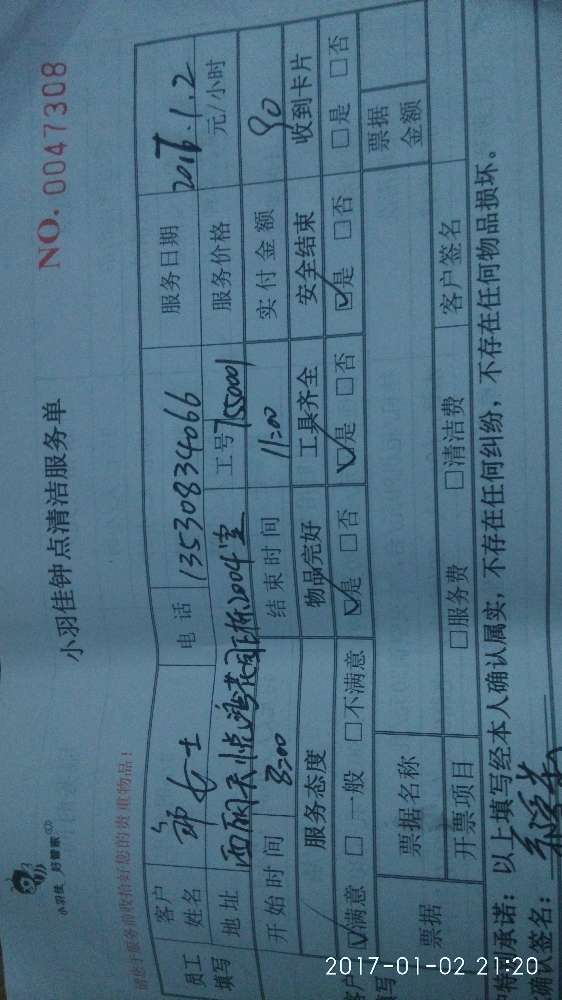 小羽佳 好管家
小羽佳钟点清洁服务单
NO. 0047308
请您于服务前收拾好您的贵重物品！
员工填写 客户姓名 女士 电话 13530834066 服务日期
地址 2004室 工号 服务价格 元/小时
开始时间 8:00 结束时间 11:00 实付金额 90
服务态度 物品完好 工具齐全 安全结束 收到卡片
☑满意 □一般 □不满意 ☑是 □否 ☑是 □否 ☑是 □否 □是 □否
票据 票据名称 票据金额
开票项目 □服务费 □清洁费 客户签名
承诺：以上填写经本人确认属实，不存在任何纠纷，不存在任何物品损坏。
确认签名：
2017-01-02 21:20